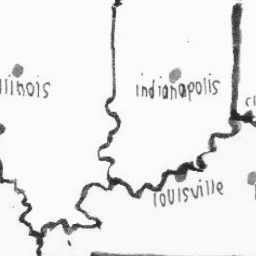 llinois
indianapolis
louisville